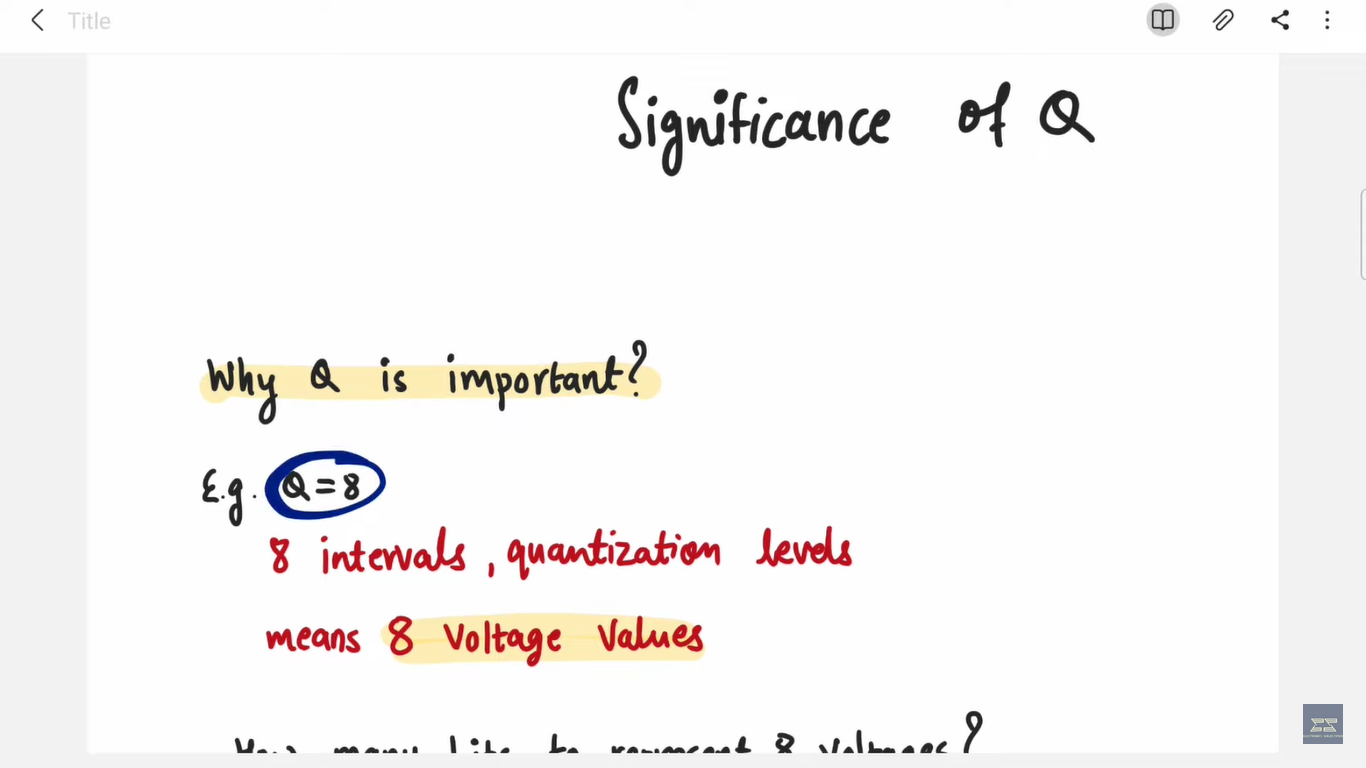 Title
Significance of Q
Why Q is important?
E.g. Q = 8
8 intervals, quantization levels
means 8 Voltage Values
How many bits to represent 8 voltages?